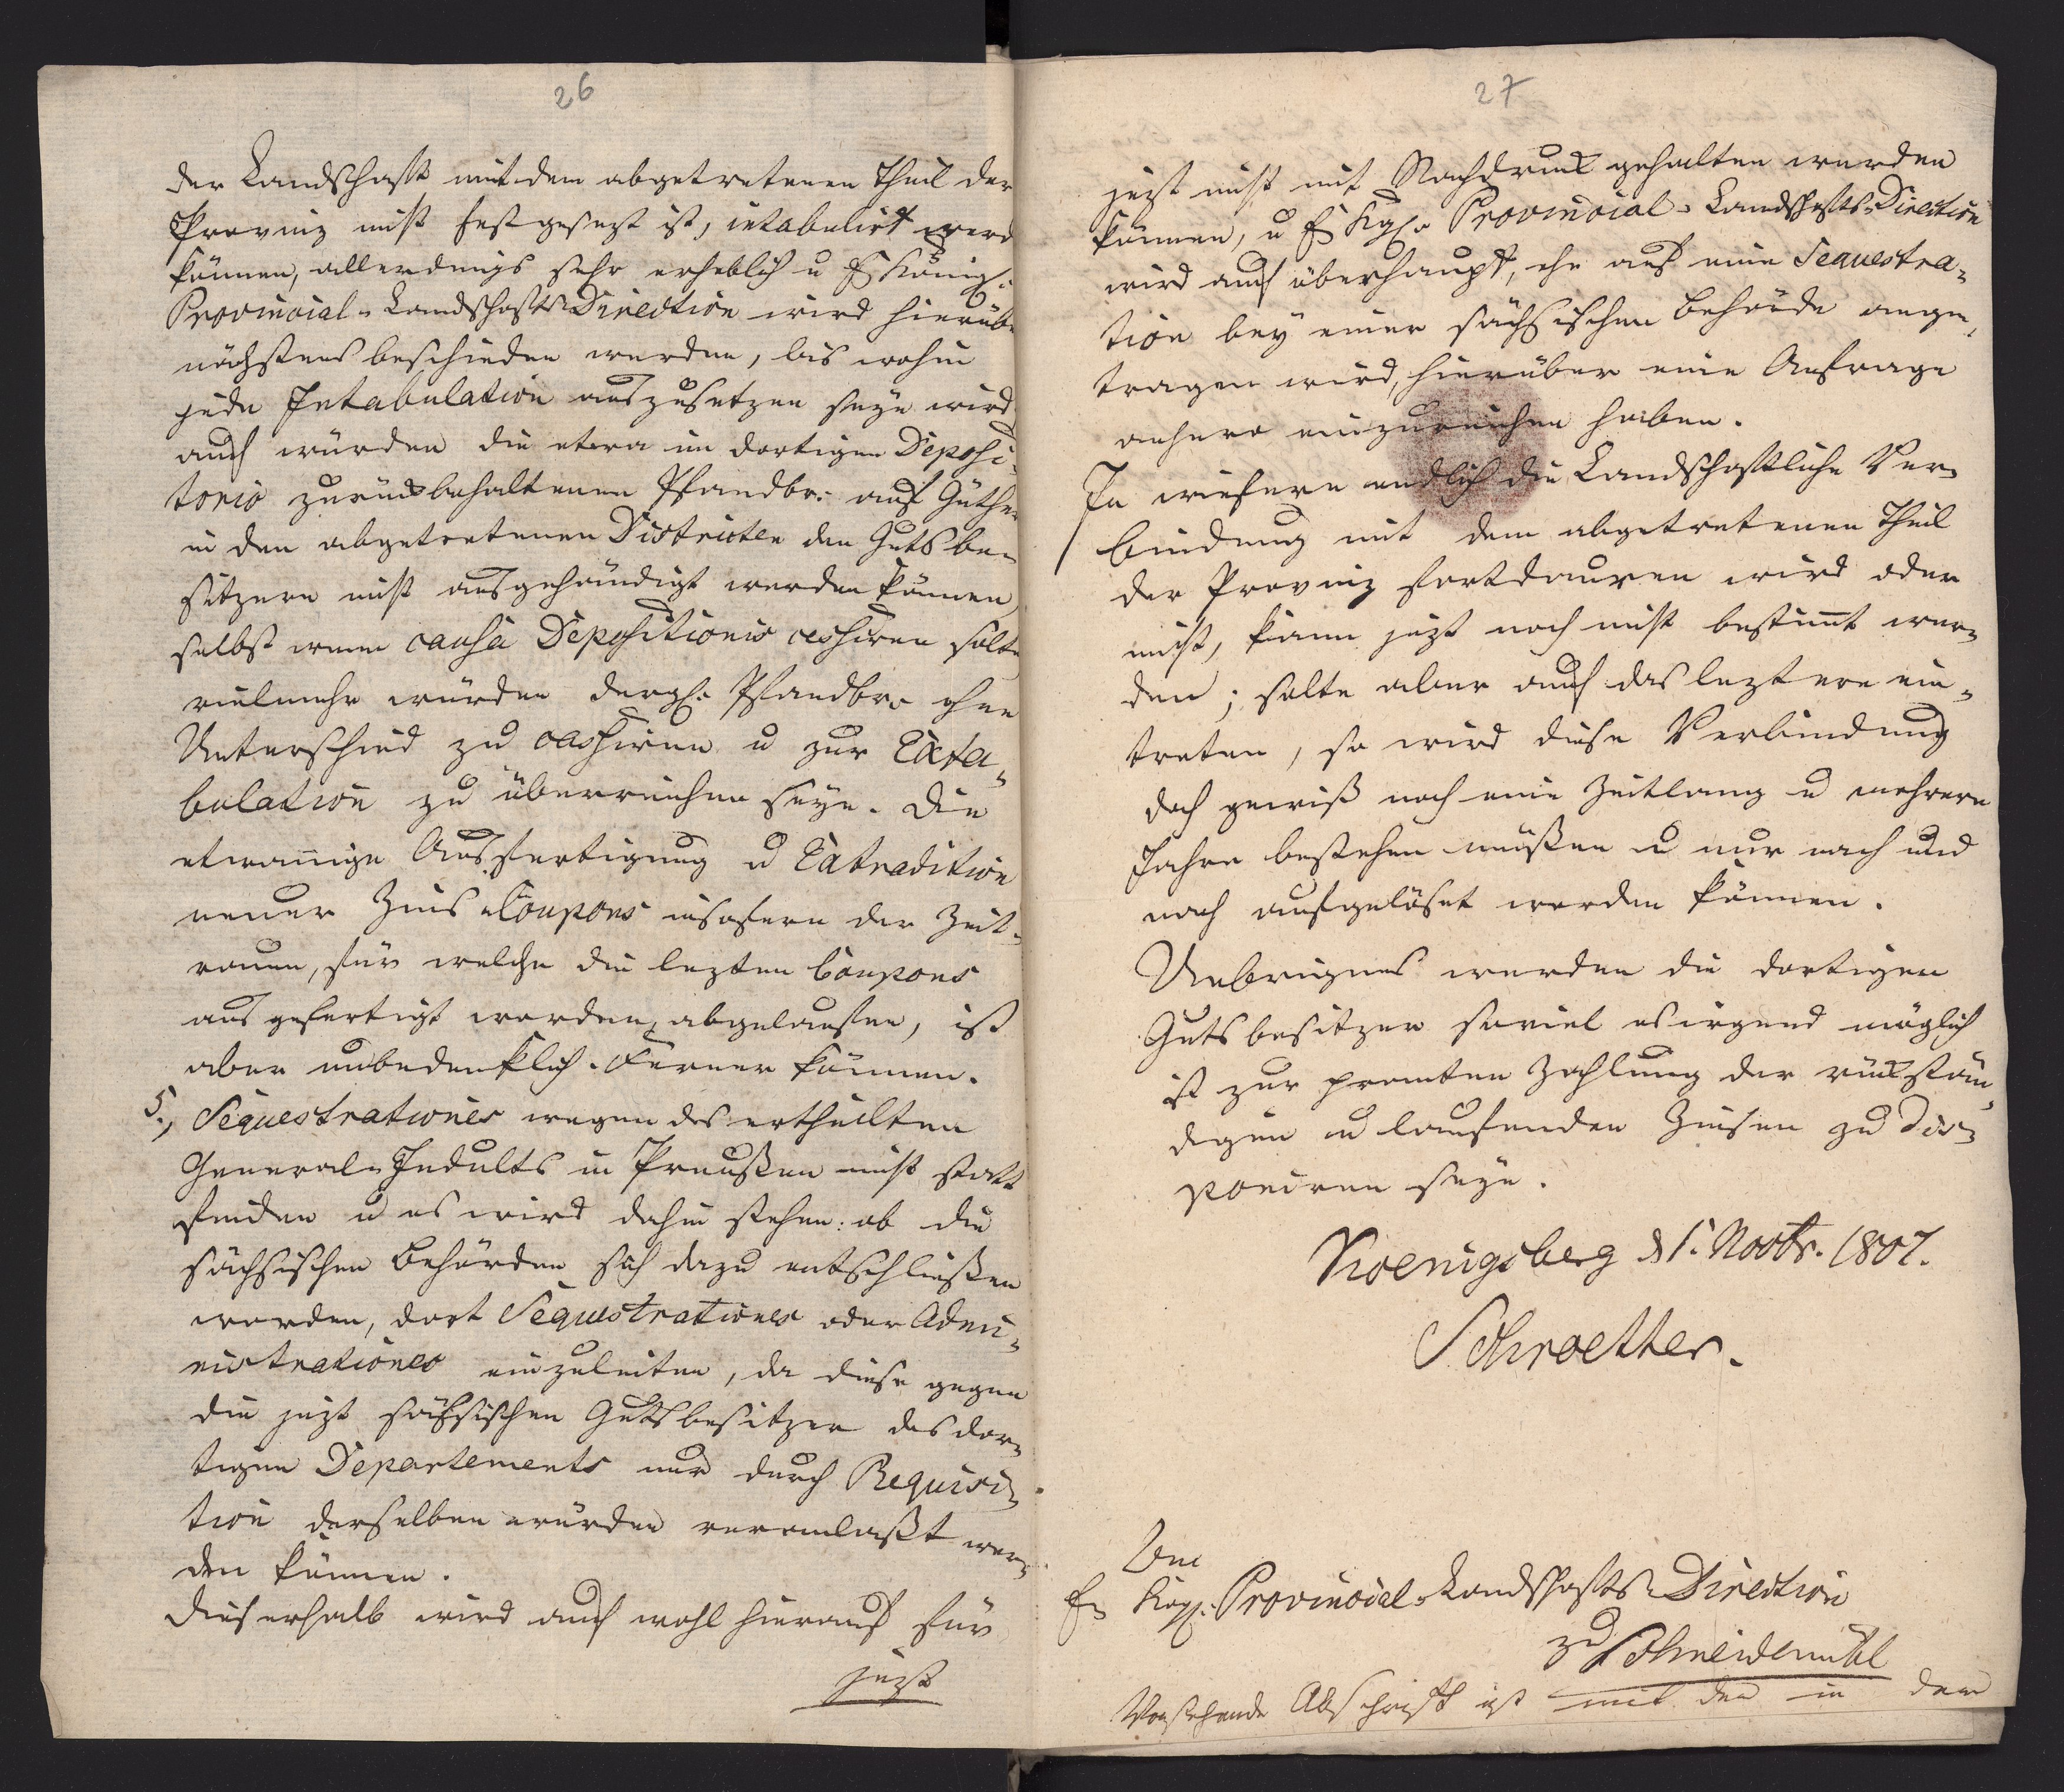 26
der Landschaft mit dem abgetretenen Theil der
Provinz nicht festgesezt ist, intabulirt werd
können, allerdings sehr erheblich u E Königl.
Provincial-LandschaftsDirection wird hierübe
nächstens beschieden werden, bis wohin
jede Intabulation auszusetzen seyn wird
auch würden die etwa im dortigen Deposi-
torio zurückbehaltenen Pfandbr: auf Güther
in den abgetretenen Districten den Gutsbe-
sitzern nicht ausgehändigt werden können,
selbst wenn causa Depositionis cessiren solte
vielmehr würden dergl. Pfandbr. ohne
Unterschied zu cassiren u zur Exta-
bulation zu überreichen seyn. Die
etwannige Ausfertigung u Extradition
neuer Zins Coupons insofern der Zeit-
raum, für welche die lezten Coupons
ausgefertigt worden, abgelaufen, ist
aber unbedenklich. Ferner können.
5., Sequestrationes wegen des ertheilten
General-Indults in Preußen nicht statt
finden u es wird dahin stehen: ob die
sächsischen Behörden sich dazu entschließen
werden, dort Sequestrationes oder Admi-
nistrationes einzuleiten, da diese gegen
die jezt sächsischen Gutsbesitzer des dor-
tigen Departements nur durch Requisi-
tion derselben würden veranlaßt wer-
den können.
Dieserhalb wird auch wohl hierauf für
jezt
27
jezt nicht mit Nachdruck gehalten werden
können, u E Kgl. Provincial-Landschafts-Direction
wird auch überhaupt, ehe auf eine Sequestra-
tion bey einer sächsischen Behörde ange-
tragen wird, hierüber eine Anfrage
anhero einzureichen haben.
In wiefern endlich die Landschaftliche Ver-
bindung mit dem abgetretenen Theil
der Provinz fortdauren wird oder
nicht, kann jezt noch nicht bestimt wer-
den; solte aber auch das leztere ein-
treten, so wird diese Verbindung
doch gewiß noch eine Zeitlang u mehrere
Jahre bestehen müßen u nur nach und
nach aufgelöset werden können.
Uebrigens werden die dortigen
Gutsbesitzer soviel es irgend möglich
ist zur promten Zahlung der rückstän-
digen u laufenden Zinsen zu dis-
poniren seyn.
Koenigsberg d 1. Novbr. 1807.
Schroetter.
An
E Kgl. Provincial-Landschafts-Direction
zu Schneidemühl
Vorstehende Abschrift ist mit der in dem